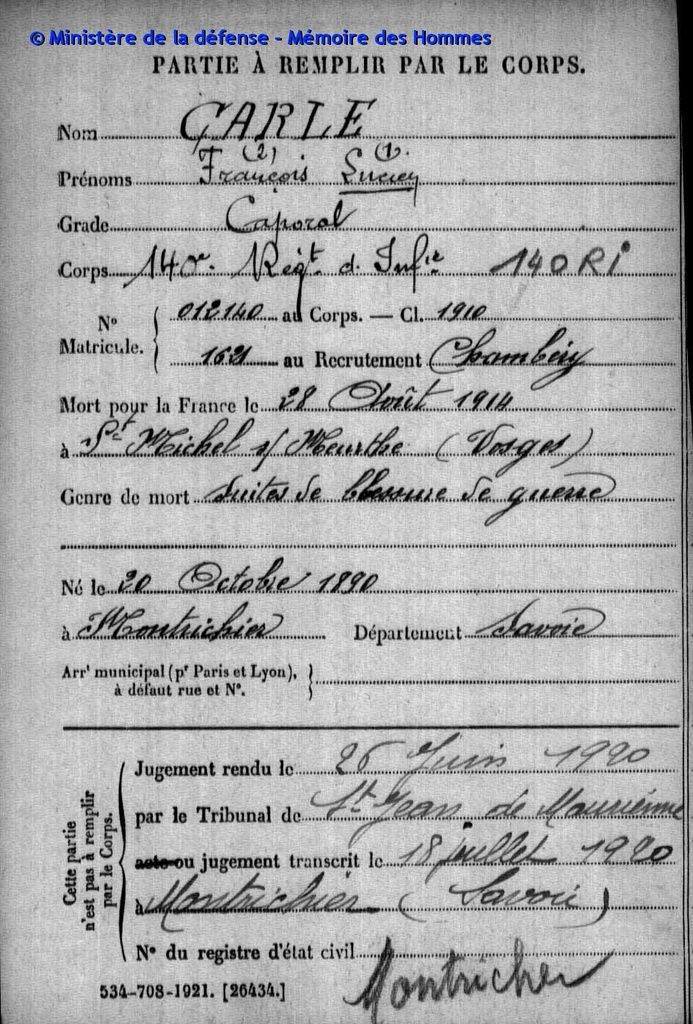 © Ministère de la défense - Mémoire des Hommes
PARTIE À REMPLIR PAR LE CORPS.
Nom CARLE
(2) (1)
Prénoms François Lucien
Grade Caporal
Corps 140e Régt d'Infie 140 RI
N° Matricule. { 012140 au Corps. — Cl. 1910
1621 au Recrutement Chambéry
Mort pour la France le 28 Août 1914
à St Michel s/ Meurthe (Vosges)
Genre de mort suites de blessure de guerre
Né le 20 Octobre 1890
à Montrichier Département Savoie
Arrt municipal (pr Paris et Lyon), à défaut rue et N°. }
Cette partie n'est pas à remplir par le Corps. {
Jugement rendu le 26 Juin 1920
par le Tribunal de St Jean de Maurienne
acte ou jugement transcrit le 18 juillet 1920
à Montrichier (Savoie)
N° du registre d'état civil
Montricher
534-708-1921. [26434.]